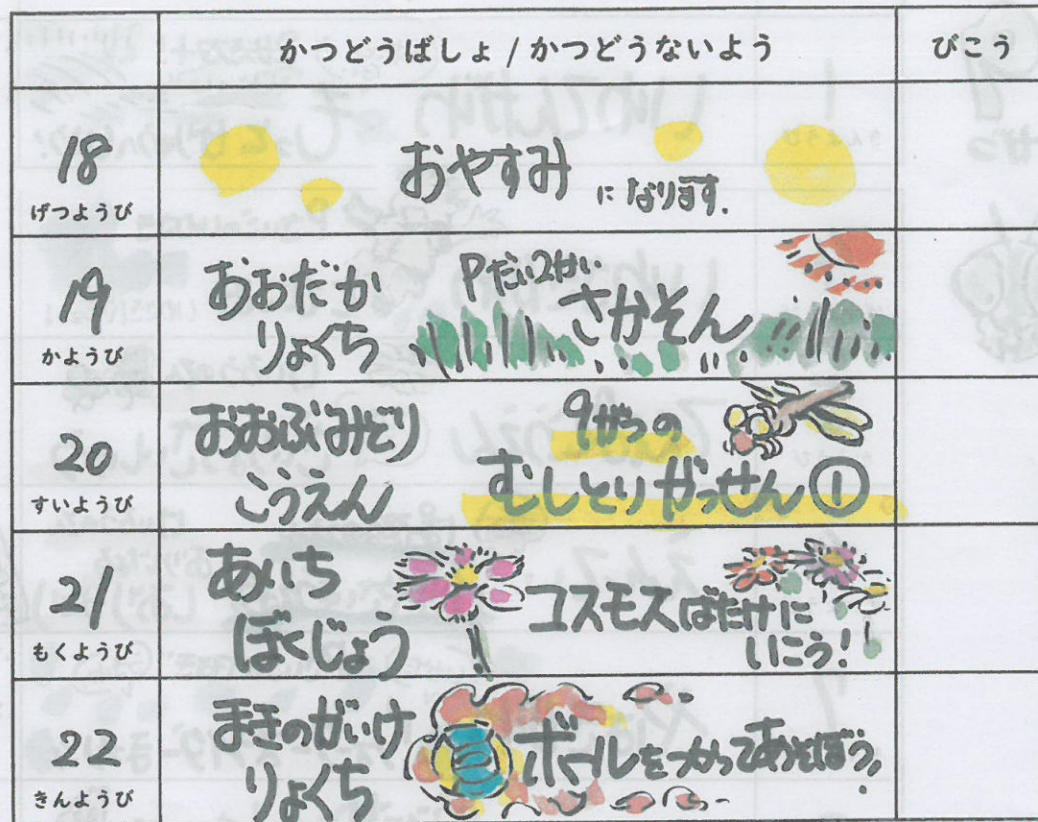 かつどうばしょ / かつどうないよう びこう
18
げつようび
おやすみ になります.
19
かようび
おおだか
りょくち
Pだい2かい
さかそん
20
すいようび
おおぶみどり
こうえん
9がつの
むしとりがっせん①
21
もくようび
あいち
ぼくじょう
コスモスばたけに
いこう!
22
きんようび
まきのがいけ
りょくち
ボールをつかってあそぼう。